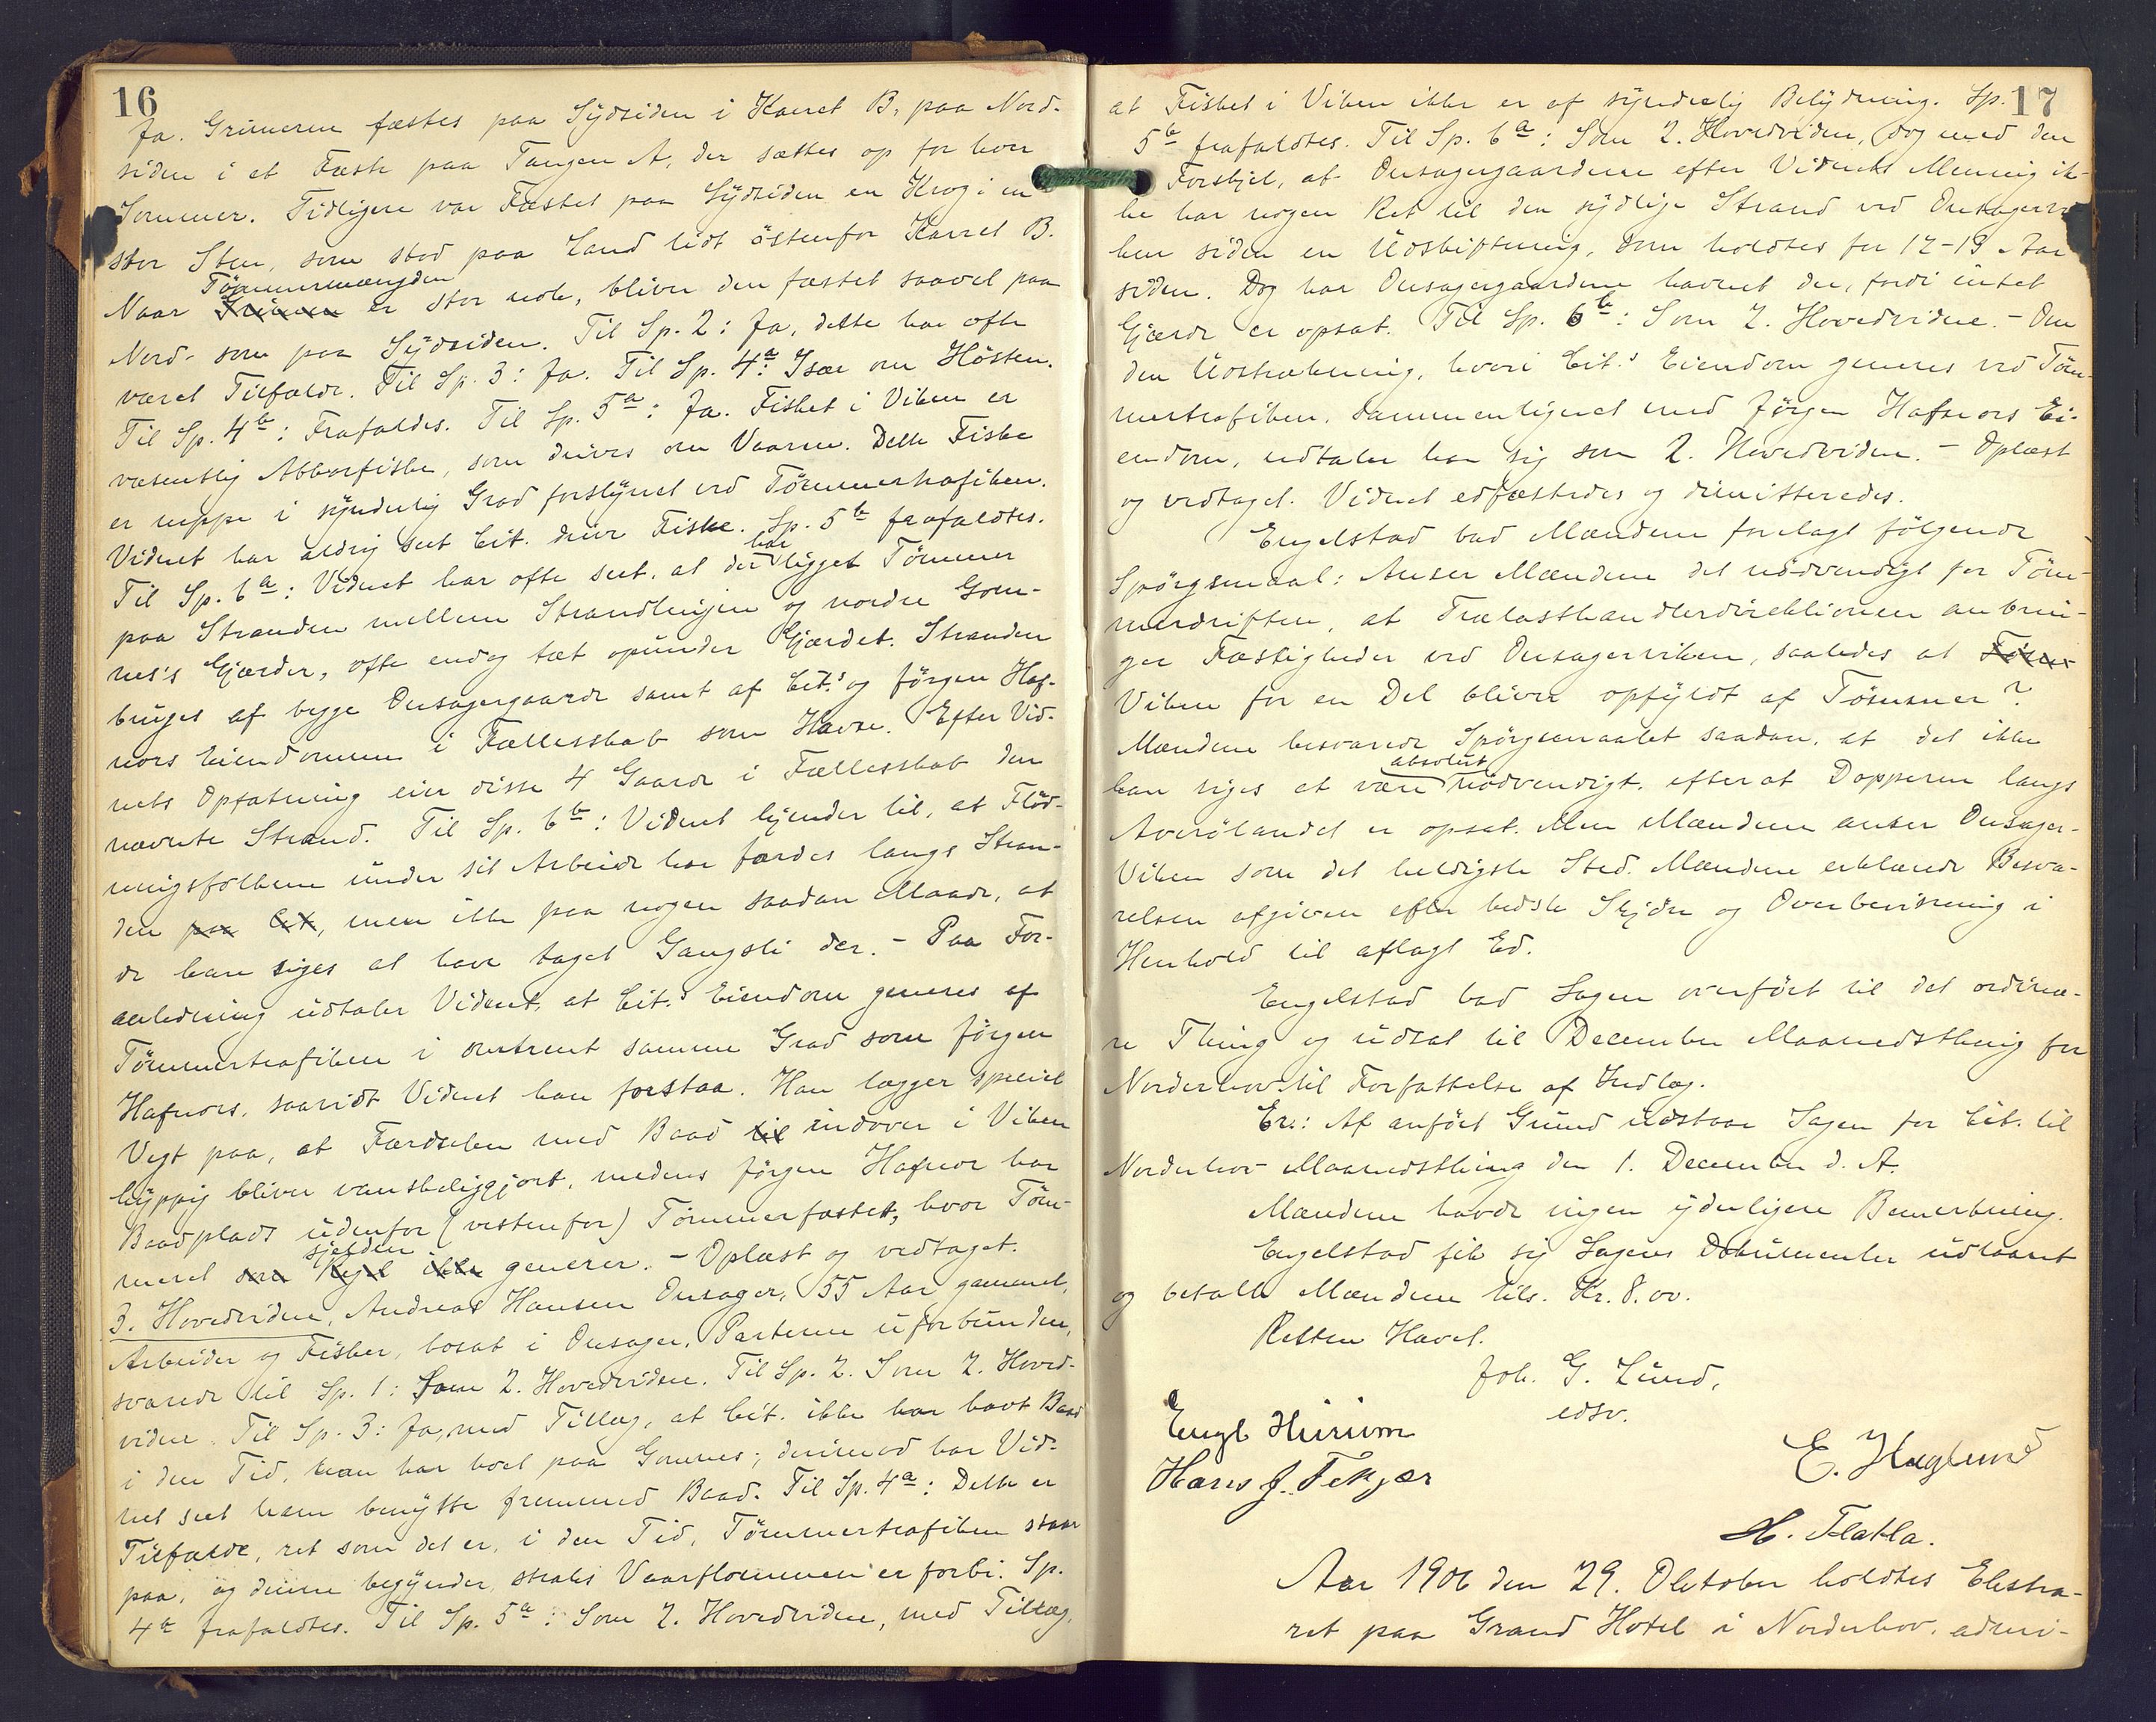 16
Ja. Grimeren fæstes paa Sydsiden i Karret B, paa Nord-
siden i et Fæste paa Tangen A, der sættes op for hver
Sommer. Tidligere var Fæstet paa Sydsiden en Krog i en
stor Sten, som stod paa Land lidt östenfor Karret B.
Tömmermængden
Naar Grimen er stor nok, bliver den fæstet saavel paa
Nord- som paa Sydsiden. Til Sp. 2: Ja, dette har ofte
været Tilfælde. Til Sp. 3: Ja. Til Sp. 4a: Især om Hösten.
Til Sp. 4b: Frafaldes. Til Sp. 5a: Ja. Fisket i Viken er
væsentlig Abborfiske, som drives om Vaaren. Dette Fiske
er neppe i synderlig Grad forstyrret ved Tömmertrafiken.
Vidnet har aldrig seet Cit. drive Fiske. Sp. 5b frafaldtes.
har
Til Sp. 6a: Vidnet har ofte seet, at der ligget Tömmer
paa Stranden mellem Strandlinjen og nordre Gom-
nes's Gjærder, ofte endog tæt opunder Gjærdet. Stranden
bruges af begge Onsagergaarde samt af Cit.s og Jörgen Haf-
nors Eiendomme i Fællesskab som Havn. Efter Vid-
nets Opfatning eier disse 4 Gaarde i Fællesskab den
nævnte Strand. Til Sp. 6b: Vidnet kjender til, at Flöd-
ningsfolkene under sit Arbeide har færdes langs Stran-
den paa Cit, men ikke paa nogen saadan Maade, at
de kan siges at have taget Gangsti der. - Paa For-
anledning udtaler Vidnet, at Cit.s Eiendom generes af
Tömmertrafiken i omtrent samme Grad som Jörgen
Hafnors, saavidt Vidnet kan forstaa. Han lægger speciel
Vegt paa, at Færdselen med Baad til indover i Viken
hyppig bliver vanskeliggjort, medens Jörgen Hafnor har
Baadplads udenfor (vestenfor) Tömmerfæstet, hvor Töm-
sjelden
meret som Regel ikke generer. - Oplæst og vedtaget.
3. Hovedvidne, Andreas Hansen Onsager, 55 Aar gammel,
Arbeider og Fisker, bosat i Onsager, Parterne uforbunden,
svarede til Sp. 1: Som 2. Hovedvidne. Til Sp. 2. Som 2. Hoved-
vidne. Til Sp. 3: Ja, med Tillæg, at Cit. ikke har havt Baad
i den Tid, han har boet paa Gomnes; derimod har Vid-
net seet ham benytte fremmed Baad. Til Sp. 4a: Dette er
Tilfælde, ret som det er, i den Tid, Tömmertrafiken staar
paa, og denne begynder, straks Vaarflommen er forbi. Sp.
4b frafaldtes. Til Sp. 5a: Som 2. Hovedvidne, med Tillæg,
17
at Fisket i Viken ikke er af synderlig Betydning. Sp.
5b frafaldtes. Til Sp. 6a: Som 2. Hovedvidne, dog med den
Forskjel, at Onsagergaardene efter Vidnets Mening ik-
ke har nogen Ret til den sydlige Strand ved Onsagervi-
ken siden en Udskiftning, som holdtes for 12-13 Aar
siden. Dog har Onsagergaardene havnet der, fordi intet
Gjærde er opsat. Til Sp. 6b: Som 2. Hovedvidne. - Om
den Udstrækning, hvori Cit.s Eiendom generes ved Töm-
mertrafiken, sammenlignet med Jörgen Hafnors Ei-
endom, udtaler han sig som 2. Hovedvidne. - Oplæst
og vedtaget. Vidnet edfæstedes og dimitteredes.
Engelstad bad Mændene forelagt fölgende
Spörgsmaal: Anser Mændene det nödvendigt for Töm-
merdriften, at Trælasthandlerdirektionen anbrin-
ger Fæstigheder ved Onsagerviken, saaledes at Töm-
Viken for en Del bliver opfyldt af Tömmer?
Mændene besvarede Spörgsmaalet saadan, at det ikke
absolut
kan siges at være nödvendigt, efterat Dopperne langs
Averölandet er opsat. Men Mændene anser Onsager-
Viken som det heldigste Sted. Mændene erklærede Besva-
relsen afgiven efter bedste Skjön og Overbevisning i
Henhold til aflagt Ed.
Engelstad bad Sagen overfört til det ordinæ-
re Thing og udsat til December Maanedsthing for
Norderhov til Forfattelse af Indlæg.
Er.: Af anfört Grund udstaar Sagen for Cit. til
Norderhov Maanedsthing den 1. December d. A.
Mændene havde ingen yderligere Bemerkning.
Engelstad fik sig Sagens Dokumenter udlaant
og betalte Mændene tils. Kr. 8.00.
Retten Hævet.
Joh. G. Lund,
edsv.
Engb Hurum
E. Haglund
Hans J. Fekjær
H. Flatla.
Aar 1906 den 29. Oktober holdtes Ekstra-
ret paa Grand Hotel i Norderhov, admi-